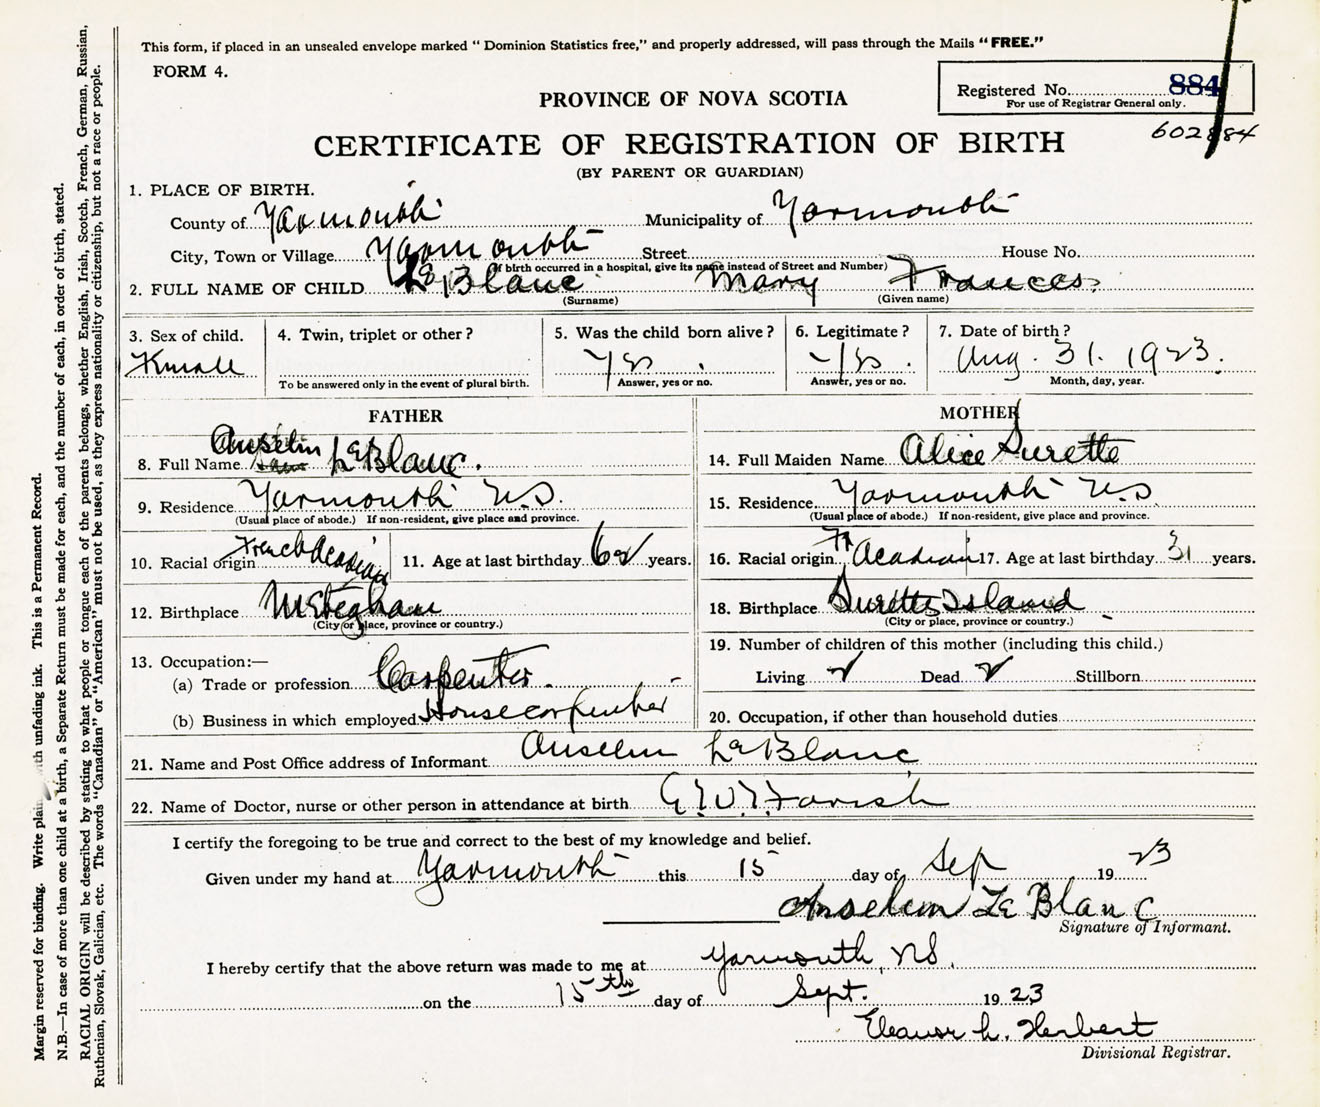 This form, if placed in an unsealed envelope marked "Dominion Statistics free," and properly addressed, will pass through the Mails "FREE."
FORM 4.
Registered No. 884
For use of Registrar General only.
PROVINCE OF NOVA SCOTIA
602884
CERTIFICATE OF REGISTRATION OF BIRTH
(BY PARENT OR GUARDIAN)
1. PLACE OF BIRTH.
County of Yarmouth Municipality of Yarmouth
City, Town or Village Yarmouth Street House No.
(If birth occurred in a hospital, give its name instead of Street and Number)
2. FULL NAME OF CHILD LeBlanc Mary Frances
(Surname) (Given name)
3. Sex of child. 4. Twin, triplet or other? 5. Was the child born alive? 6. Legitimate? 7. Date of birth?
Female Yes Yes Aug. 31. 1923.
To be answered only in the event of plural birth. Answer, yes or no. Answer, yes or no. Month, day, year.
FATHER
Anselm
8. Full Name LeBlanc.
9. Residence Yarmouth N.S.
(Usual place of abode.) If non-resident, give place and province.
10. Racial origin French Acadian 11. Age at last birthday years.
12. Birthplace Meteghan
(City or place, province or country.)
13. Occupation:—
(a) Trade or profession Carpenter.
(b) Business in which employed House carpenter
MOTHER
14. Full Maiden Name Alice Surette
15. Residence Yarmouth N.S
(Usual place of abode.) If non-resident, give place and province.
16. Racial origin Fr Acadian 17. Age at last birthday 31 years.
18. Birthplace Surette Island
(City or place, province or country.)
19. Number of children of this mother (including this child.)
Living 2 Dead 2 Stillborn
20. Occupation, if other than household duties
21. Name and Post Office address of Informant Anselm LeBlanc
22. Name of Doctor, nurse or other person in attendance at birth G.W.T. Farish
I certify the foregoing to be true and correct to the best of my knowledge and belief.
Given under my hand at Yarmouth this 15 day of Sep 1923
Anselem Le Blanc
Signature of Informant.
I hereby certify that the above return was made to me at Yarmouth, N.S.
on the 15th day of Sept. 1923
Eleanor L. Herbert
Divisional Registrar.
Margin reserved for binding. Write plain with unfading ink. This is a Permanent Record.
N.B.—In case of more than one child at a birth, a Separate Return must be made for each, and the number of each, in order of birth, stated.
RACIAL ORIGIN will be described by stating to what people or tongue each of the parents belongs, whether English, Irish, Scotch, French, German, Russian,
Ruthenian, Slovak, Galician, etc. The words "Canadian" or "American" must not be used, as they express nationality or citizenship, but not a race or people.